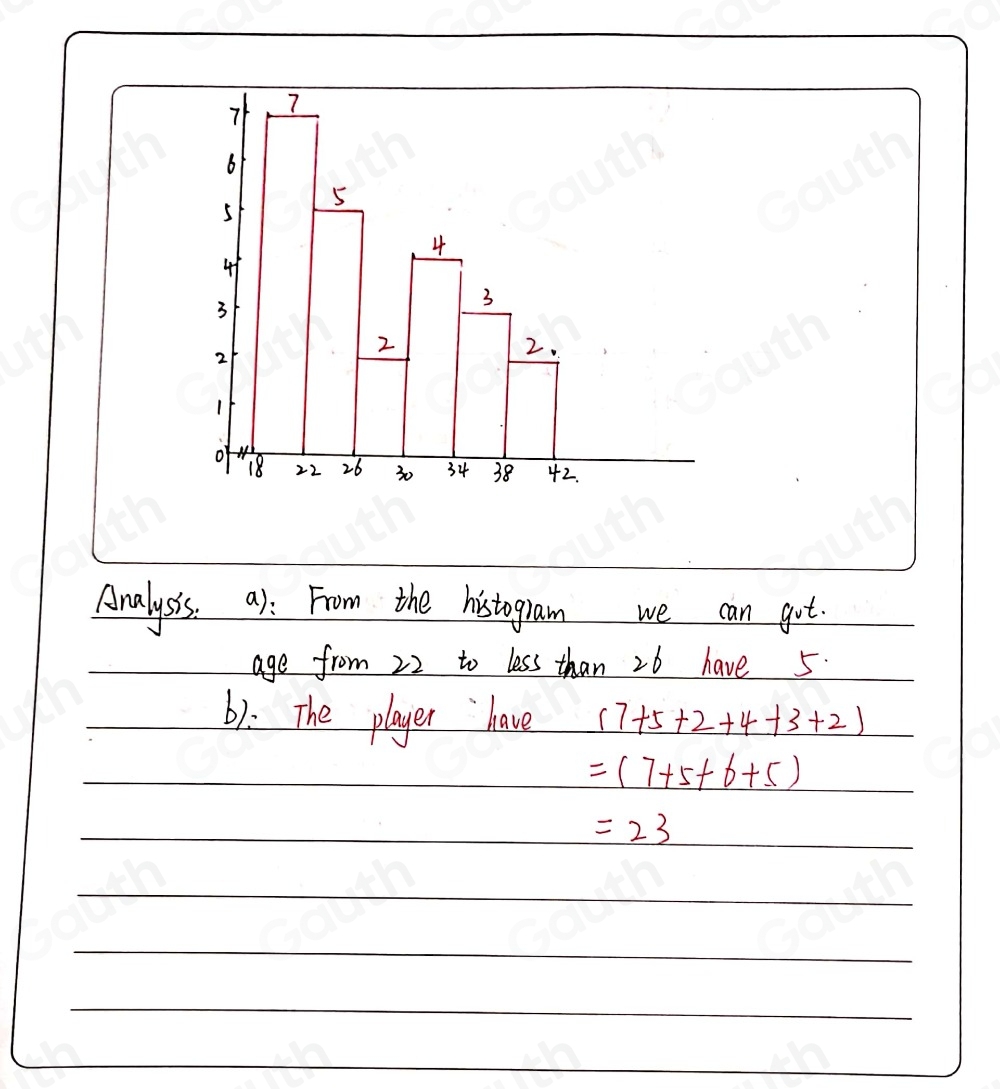 7
7
6
5
5
4
4
3
3
2
2
2.
1
0
18 22 26 30 34 38 42.
Analysis. a): From the histogram we can gut.
age from 22 to less than 26 have 5.
b):. The player have (7+5+2+4+3+2)
=(7+5+6+5)
=23
Gauth